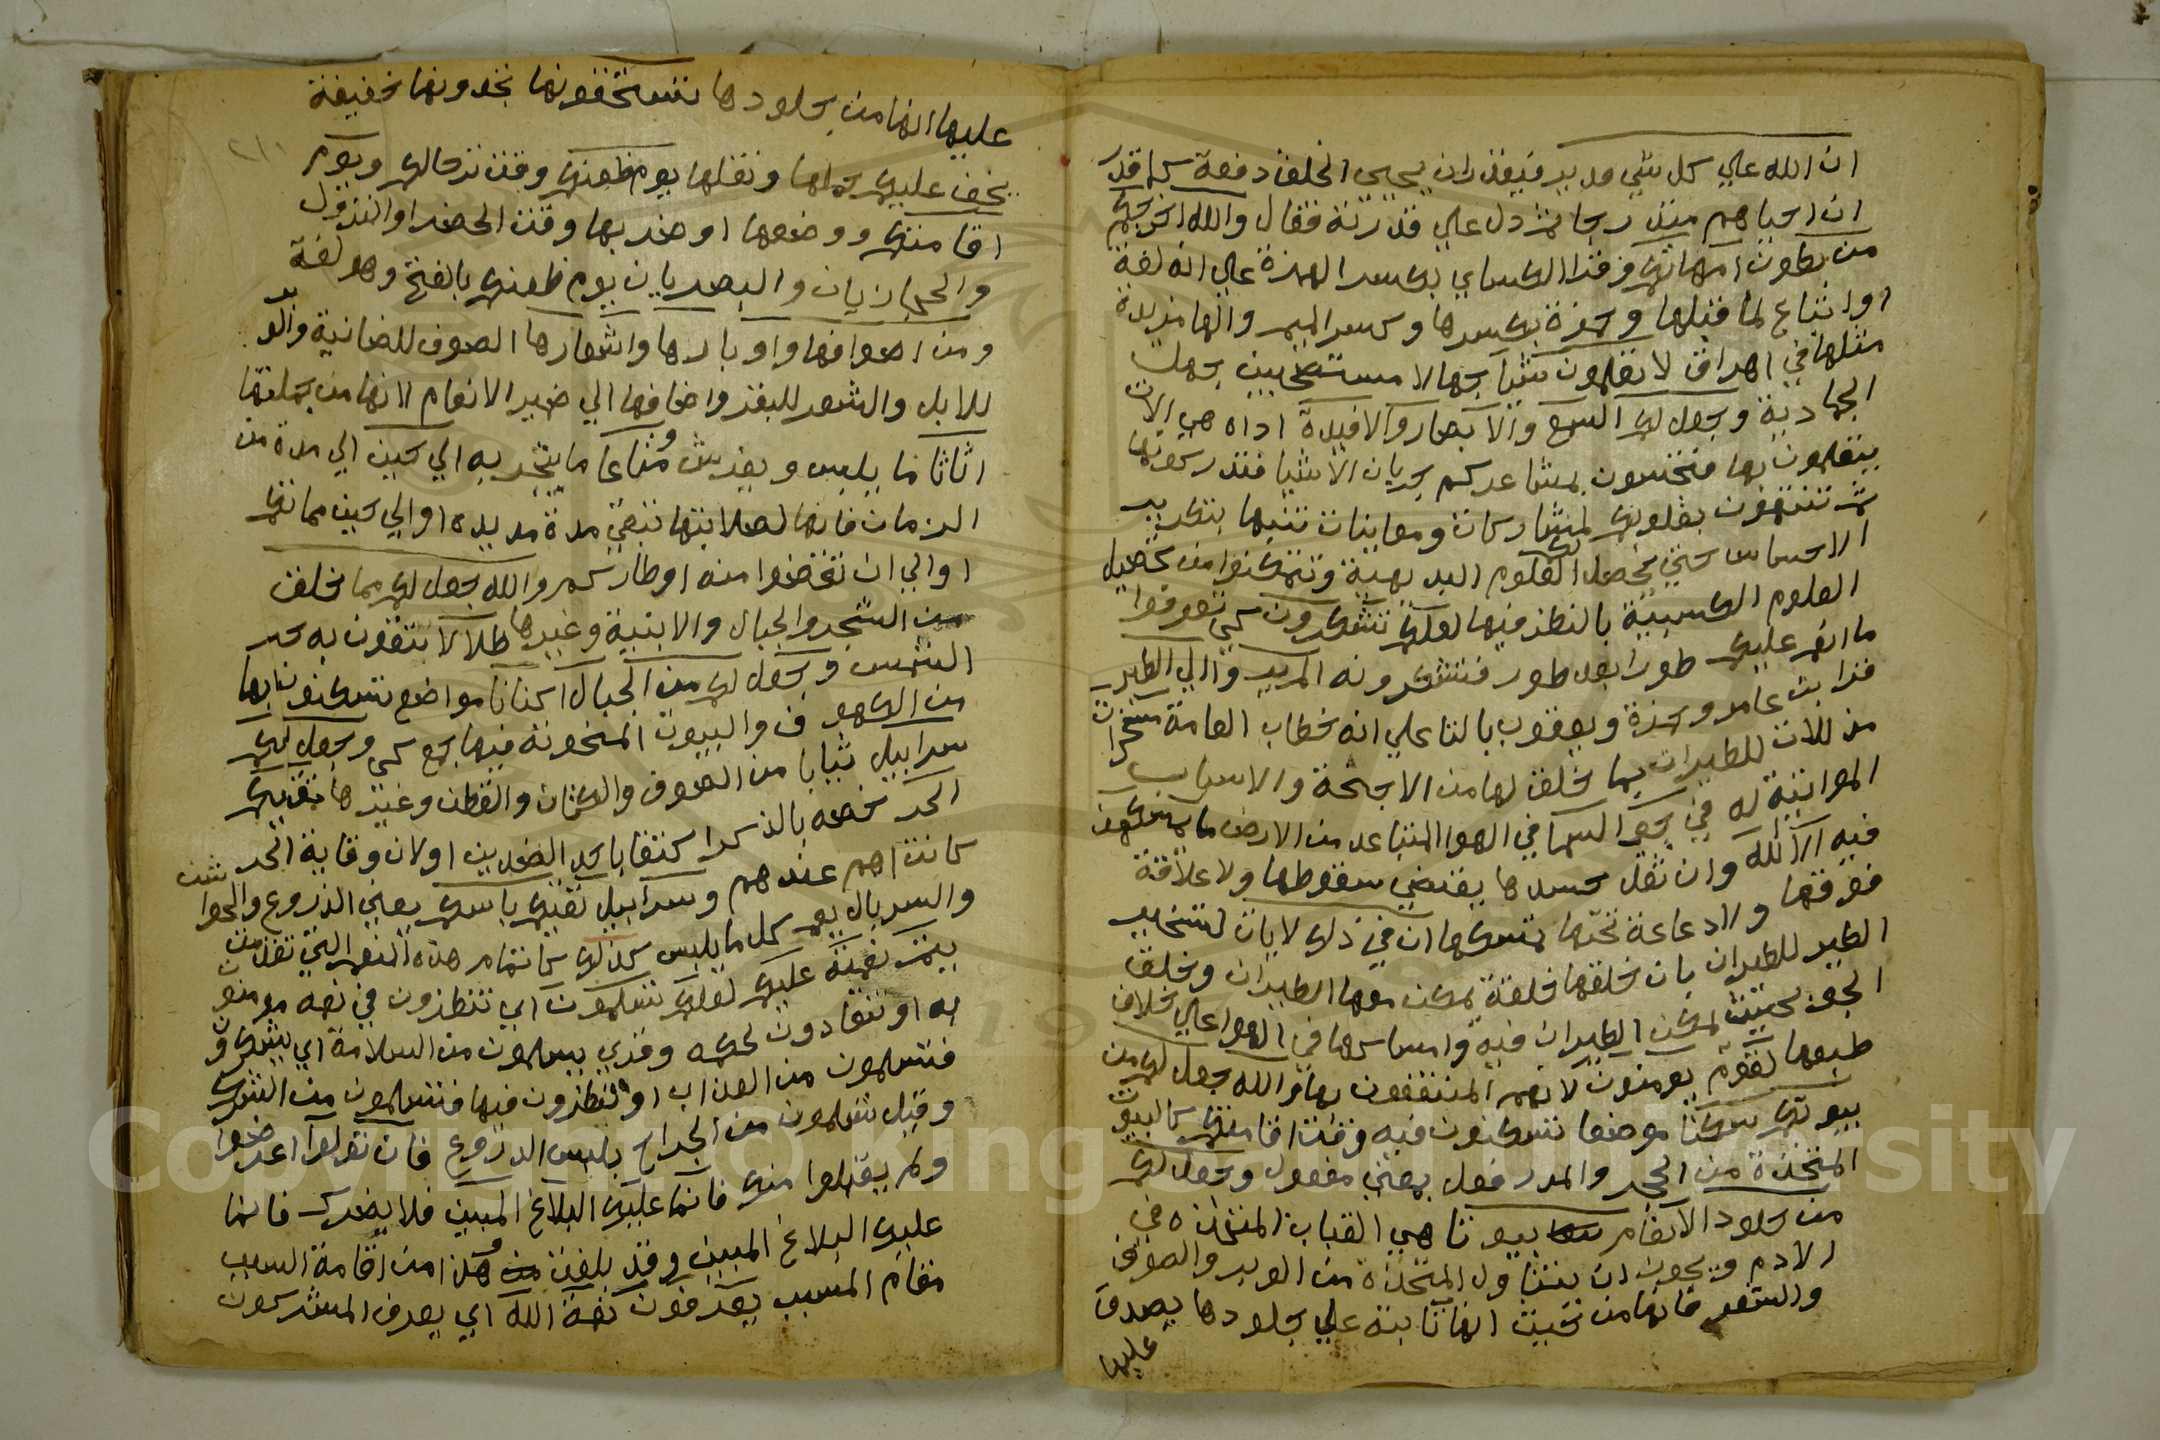 ان الله علي كل شي قدير فيقدر ان يحيي الخلق دفعة كما قدر
ان احياهم متدرجا ثم دل علي قدرته فقال والله اخرجكم
من بطون امهاتكم وقرا الكساي بكسر الهمزة علي انه لغة
او اتباع لما قبلها وحمزة بكسرها وكسر الميم والها مزيدة
مثلها في اهراق لا تعلمون شيا جهالا مستصحبين جهل
الجمادية وجعل لكم السمع والابصار والافيدة اداة هي الات
يتعلمون بها فتحسون بمشاعركم جزيات الاشيا فتدركونها
ثم تتنبهون بقلوبكم لمشاركات ومباينات بينها بتكرير
الاحساس حتي يحصل لكم العلوم البديهية وتتمكنوا من تحصيل
العلوم الكسبية بالنظر فيها لعلكم تشكرون كي تعرفوا
ما انعم عليكم طورا بعد طور فتشكرونه الم يروا الي الطير
قرا ابن عامر وحمزة ويعقوب بالتا علي انه خطاب العامة مسخرات
مذللات للطيران بما خلق لها من الاجنحة والاسباب
المواتية له في جو السما في الهوا المتباعد من الارض ما يمسكهن
فيه الا الله وان ثقل جسدها يقتضي سقوطها ولا علاقة
فوقها ولا دعامة تحتها تمسكها ان في ذلك لايات لتسخير
الطير للطيران بان خلقها خلقة يمكن معها الطيران وخلق
الجو بحيث يمكن الطيران فيه وامساكها في الهوا علي خلاف
طبعها لقوم يومنون لانهم المنتفعون بها والله جعل لكم من
بيوتكم سكنا موضعا تسكنون فيه وقت اقامتكم كالبيوت
المتخذة من الحجر والمدر فعل بمعني مفعول وجعل لكم
من جلود الانعام بيوتا هي القباب المتخذه في
الادم ويجوز ان يتناول المتخذة من الوبر والصوف
والشعر فانها من حيث انها نابتة علي جلودها يصدق
عليها
عليها انها من جلودها تستخفونها تجدونها خفيفة
يخف عليكم حملها ونقلها يوم ظعنكم وقت ترحالكم ويوم
اقامتكم ووضعها او ضربها وقت الحضر او النزول
والحجازيان والبصريان يوم ظعنكم بالفتح وهو لغة
ومن اصوافها واوبارها واشعارها الصوف للضانية والوبر
للابل والشعر للمعز واضافها الي ضمير الانعام لانها من جملتها
اثاثا ما يلبس ويفرش ومتاعا ما يتجر به الي حين الي مدة من
الزمان فانها لصلابتها تبقي مدة مديده او الي حين مماتكم
او الي ان تقضوا منه اوطاركم والله جعل لكم مما خلق
من الشجر والجبال والابنية وغيرها ظلالا تتقون به حر
الشمس وجعل لكم من الجبال اكنانا مواضع تسكنون بها
من الكهوف والبيوت المنحوتة فيها جمع كن وجعل لكم
سرابيل ثيابا من الصوف والكتان والقطن وغيرها تقيكم
الحر خصه بالذكر اكتفا باحد الضدين او لان وقاية الحر
كانت اهم عندهم وسرابيل تقيكم باسكم يعني الدروع والجواشن
والسربال يعم كل ما يلبس كذلك كاتمام هذه النعم التي تقدمت
يتم نعمته عليكم لعلكم تسلمون اي تنظرون في نعمه فتومنون
به او تنقادون لحكمه وقري تسلمون من السلامة اي تشكرون
فتسلمون من العذاب او تنظرون فيها فتسلمون من الشرك
وقيل تسلمون من الجراح بلبس الدروع فان تولوا اعرضوا
ولم يقبلوا منك فانما عليك البلاغ المبين فلا يضرك فانما
عليك البلاغ المبين وقد بلغت وهذا من اقامة السبب
مقام المسبب يعرفون نعمة الله اي يعرف المشركون
Copyright © King Saud University